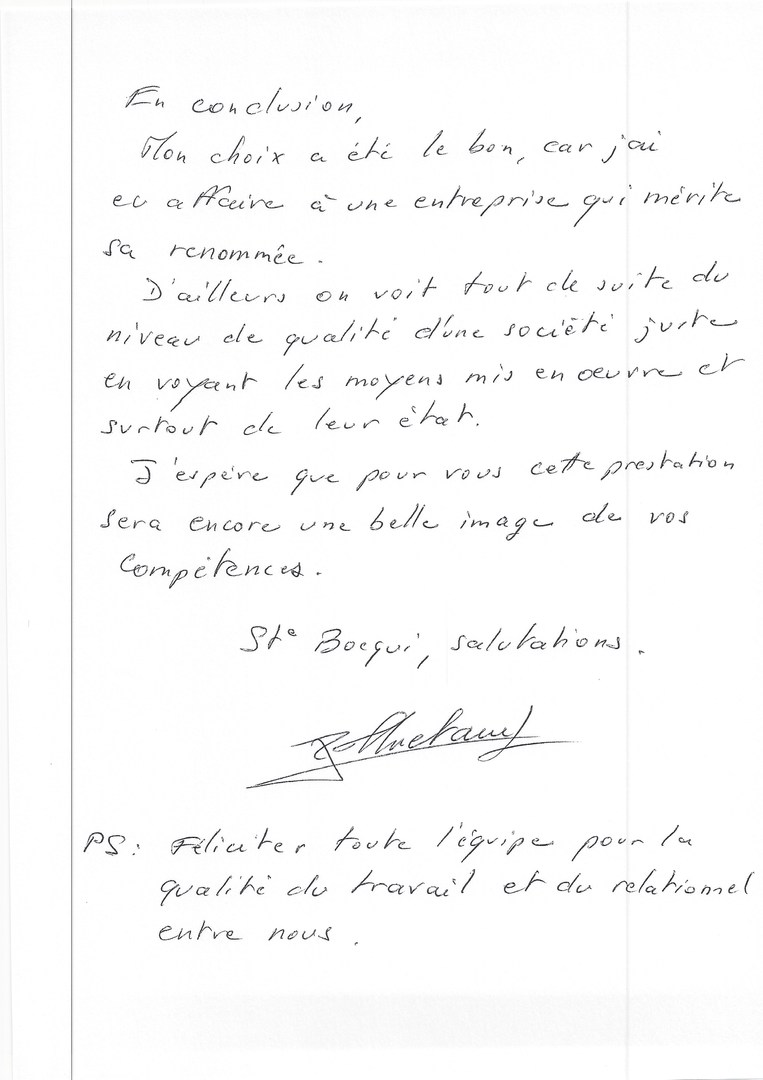 En conclusion,
Mon choix a été le bon, car j'ai
eu affaire à une entreprise qui mérite
sa renommée.
D'ailleurs on voit tout de suite du
niveau de qualité d'une société juste
en voyant les moyens mis en oeuvre et
surtout de leur état.
J'espère que pour vous cette prestation
sera encore une belle image de vos
compétences.
Sté Bocqui, salutations.
PS: Féliciter toute l'équipe pour la
qualité du travail et du relationnel
entre nous.